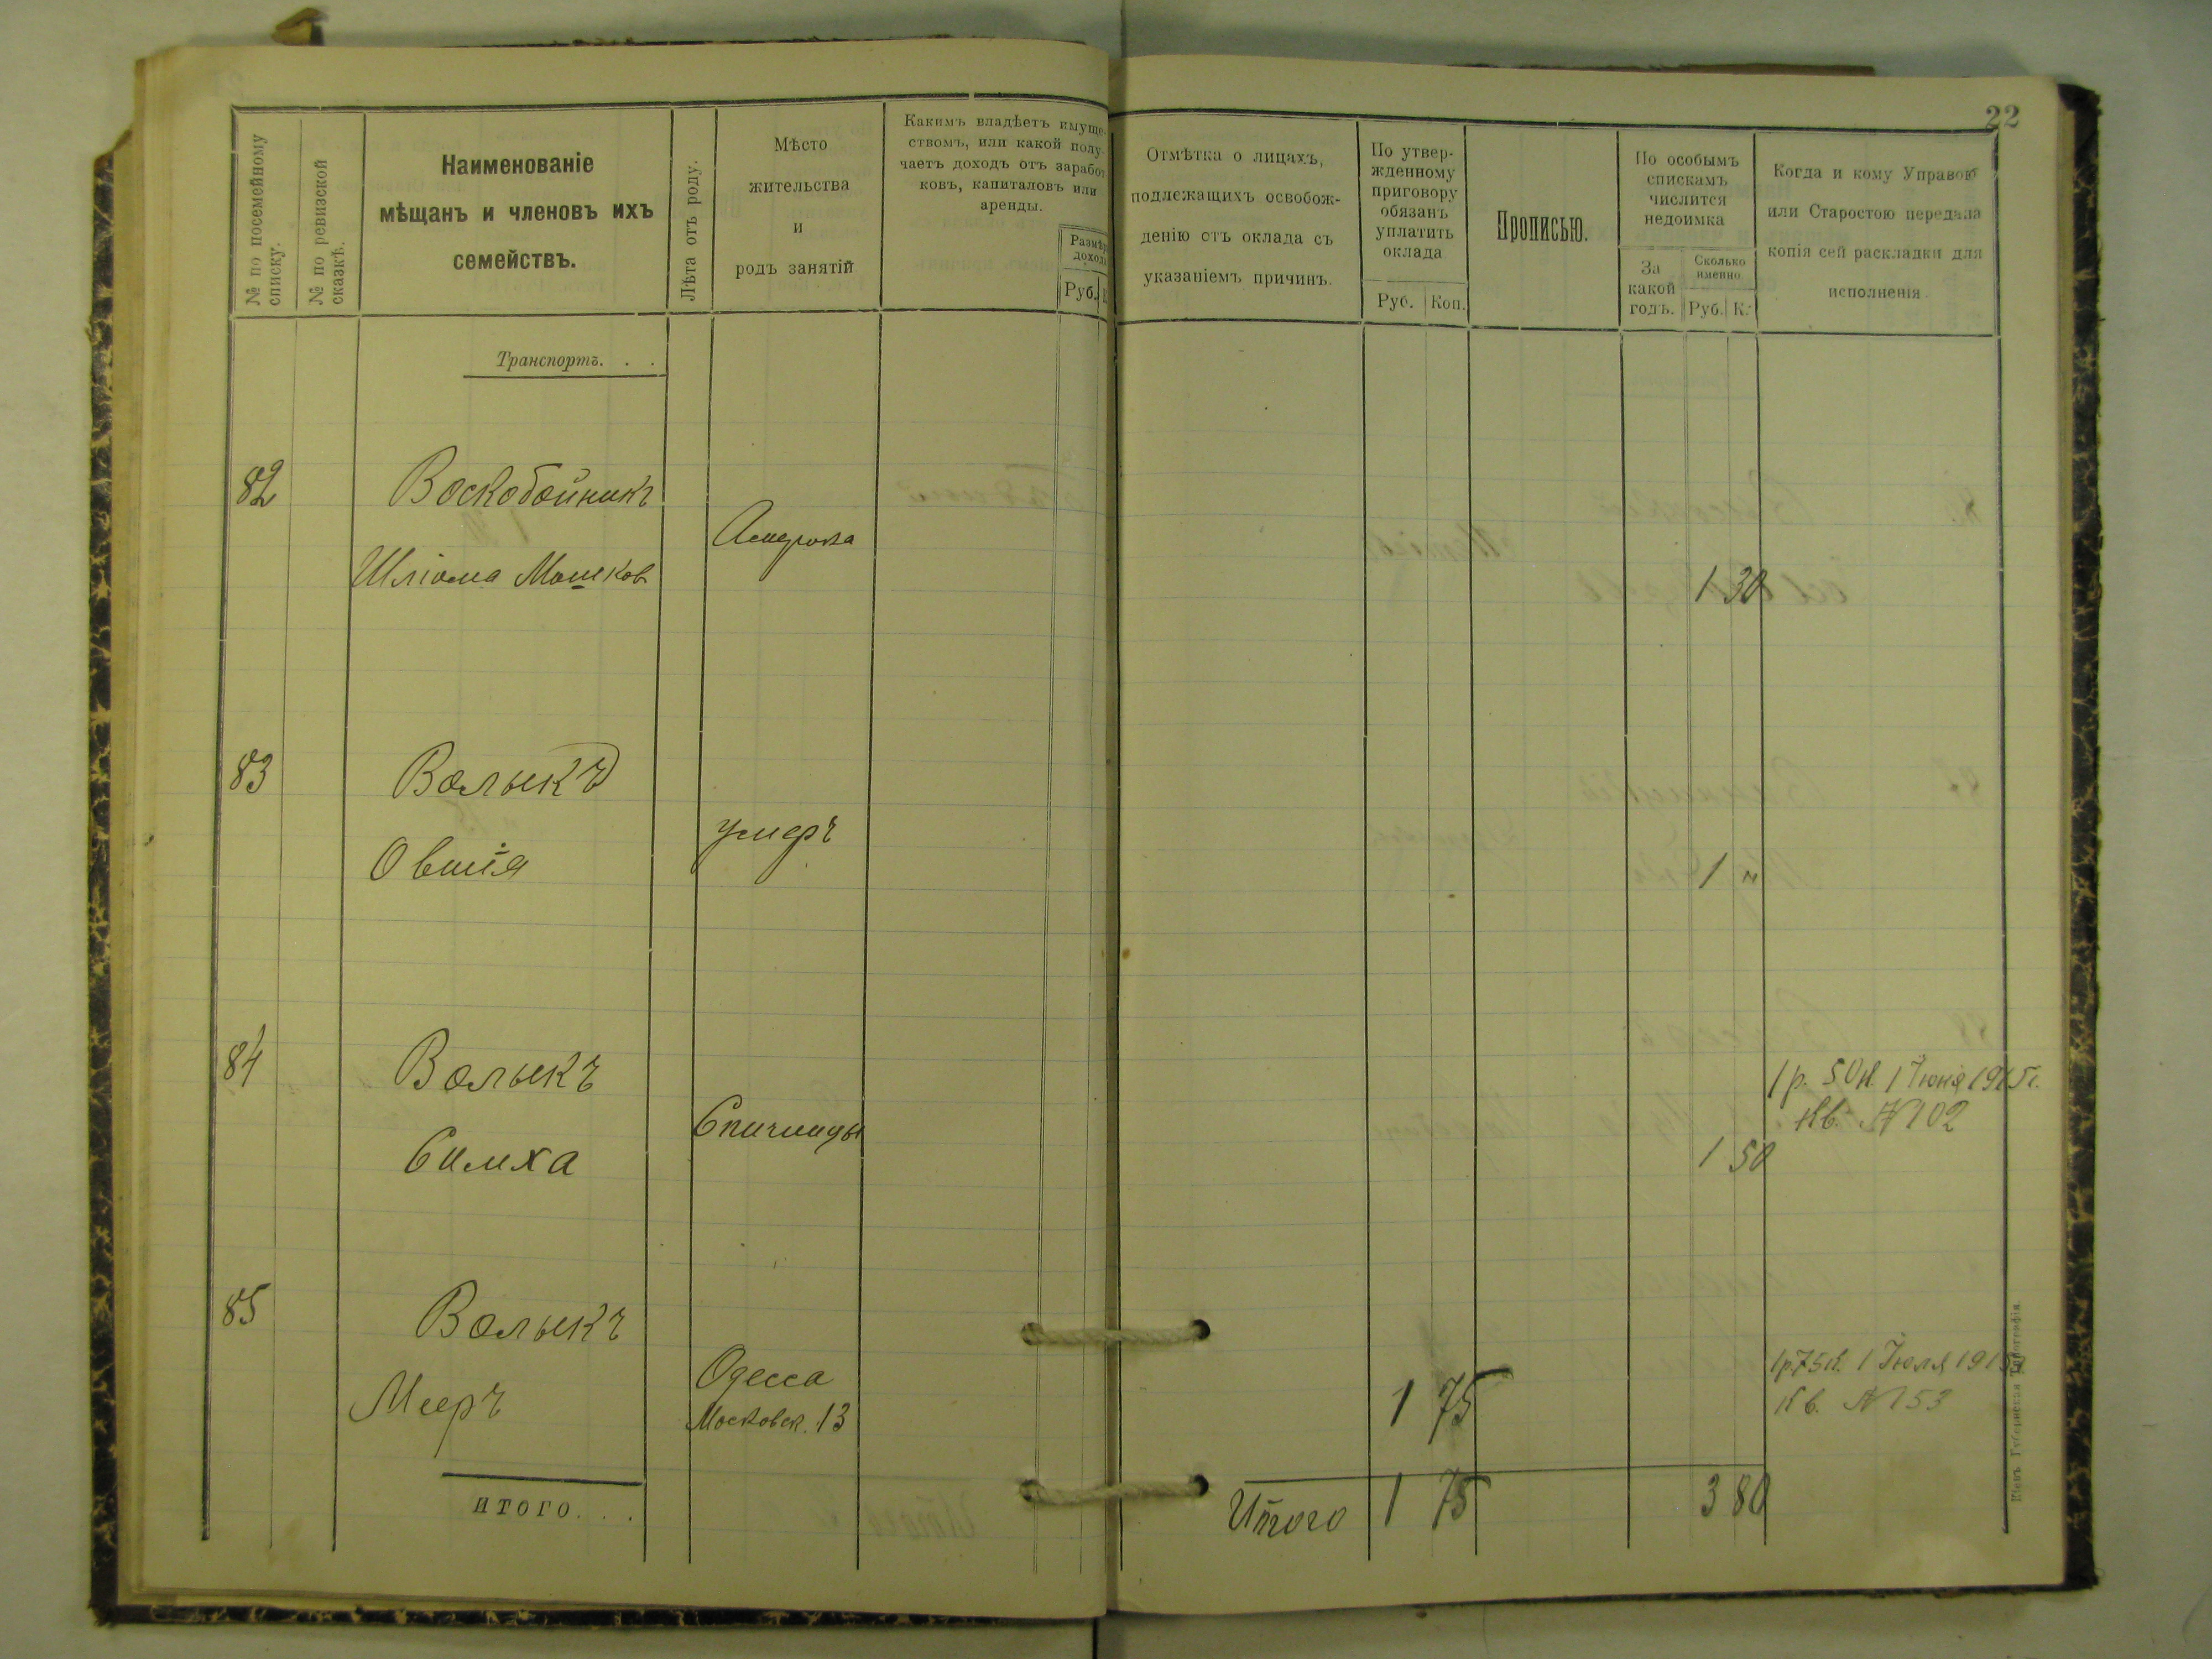 22
№ по посемейному списку.
№ по ревизской сказкѣ.
Наименованіе
мѣщанъ и членовъ ихъ
семействъ.
Лѣта отъ роду.
Мѣсто
жительства
и
родъ занятій
Какимъ владѣетъ имуще-
ствомъ, или какой полу-
чаетъ доходъ отъ заработ-
ковъ, капиталовъ или
аренды.
Размѣръ
дохода
Руб. К.
Отмѣтка о лицахъ,
подлежащихъ освобож-
денію отъ оклада съ
указаніемъ причинъ.
По утвер-
жденному
приговору
обязанъ
уплатить
оклада
Руб. Коп.
Прописью.
По особымъ
спискамъ
числится
недоимка
За
какой
годъ.
Сколько
именно
Руб. К.
Когда и кому Управою
или Старостою передана
копія сей раскладки для
исполненія
Транспортъ. . .
82 Воскобойникъ
Америка
Шліома Мошков
1 30
83 Волыкъ
умеръ
Овшія
1 "
84 Волыкъ
1 р. 50 к. 1 Іюня 1915 г.
Спичинцы
Кв. № 102
Симха
1 50
85 Волыкъ
Одесса
1р75к. 1 Іюля 191
Мееръ
Московск. 13
1 75
Кв. № 153
итого. . .
Итого 1 75
3 80
Кіевъ Губернская Типографія.